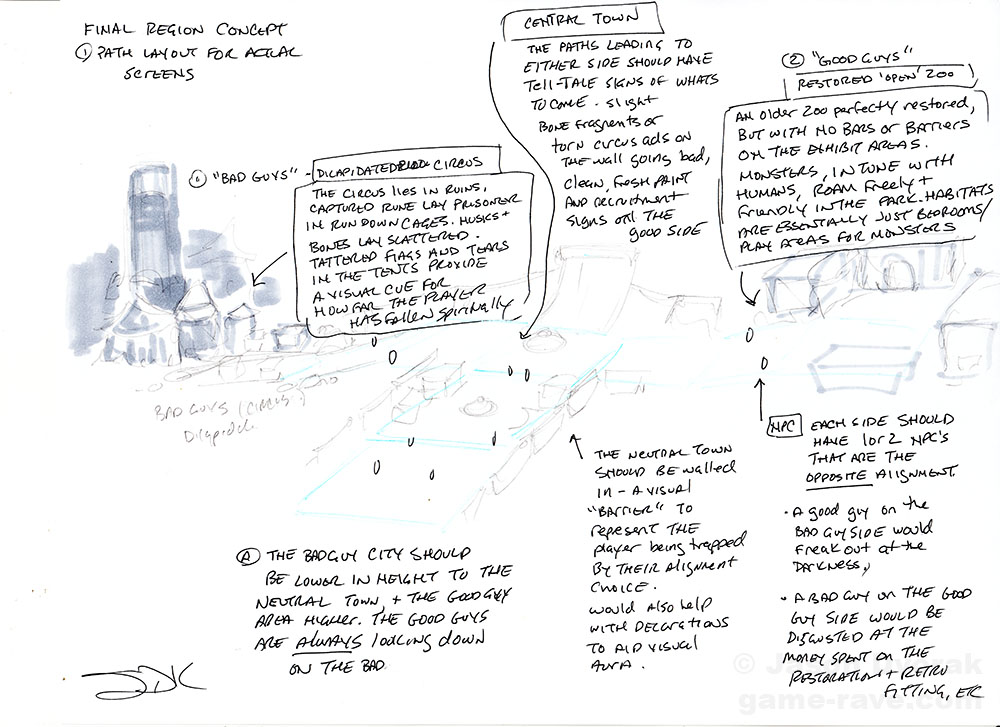 FINAL REGION CONCEPT
① PATH LAYOUT FOR ACTUAL
SCREENS
CENTRAL TOWN
THE PATHS LEADING TO
EITHER SIDE SHOULD HAVE
TELL-TALE SIGNS OF WHATS
TO COME. SLIGHT
BONE FRAGMENTS OR
TORN CIRCUS ADS ON
THE WALL GOING BAD,
CLEAN, FRESH PAINT
AND RECRUITMENT
SIGNS ON THE
GOOD SIDE
② "GOOD GUYS"
RESTORED 'OPEN' ZOO
AN OLDER ZOO PERFECTLY RESTORED,
BUT WITH NO BARS OR BARRIERS
ON THE EXHIBIT AREAS.
MONSTERS, IN TUNE WITH
HUMANS, ROAM FREELY +
FRIENDLY IN THE PARK. HABITATS
ARE ESSENTIALLY JUST BEDROOMS/
PLAY AREAS FOR MONSTERS
"BAD GUYS" - DILAPIDATED CIRCUS
THE CIRCUS LIES IN RUINS,
CAPTURED RUNE LAY PRISONER
IN RUN DOWN CAGES. HUSKS +
BONES LAY SCATTERED.
TATTERED FLAGS AND TEARS
IN THE TENTS PROVIDE
A VISUAL CUE FOR
HOW FAR THE PLAYER
HAS FALLEN SPIRITUALLY
BAD GUYS (CIRCUS)
Dilapidate
Ⓐ THE BADGUY CITY SHOULD
BE LOWER IN HEIGHT TO THE
NEUTRAL TOWN, + THE GOODGUY
AREA HIGHER. THE GOOD GUYS
ARE ALWAYS LOOKING DOWN
ON THE BAD.
THE NEUTRAL TOWN
SHOULD BE WALLED
IN - A VISUAL
"BARRIER" TO
REPRESENT THE
PLAYER BEING TRAPPED
BY THEIR ALIGNMENT
CHOICE.
WOULD ALSO HELP
WITH DECORATIONS
TO AID VISUAL
AURA.
NPC EACH SIDE SHOULD
HAVE 1 OR 2 NPC'S
THAT ARE THE
OPPOSITE ALIGNMENT.
• A GOOD GUY ON THE
BAD GUY SIDE WOULD
FREAK OUT AT THE
'DARKNESS,'
• A BAD GUY ON THE GOOD
GUY SIDE WOULD BE
DISGUSTED AT THE
MONEY SPENT ON THE
RESTORATION + RETRO
FITTING, ETC
JDK
© Ja
rak
game-rave.com